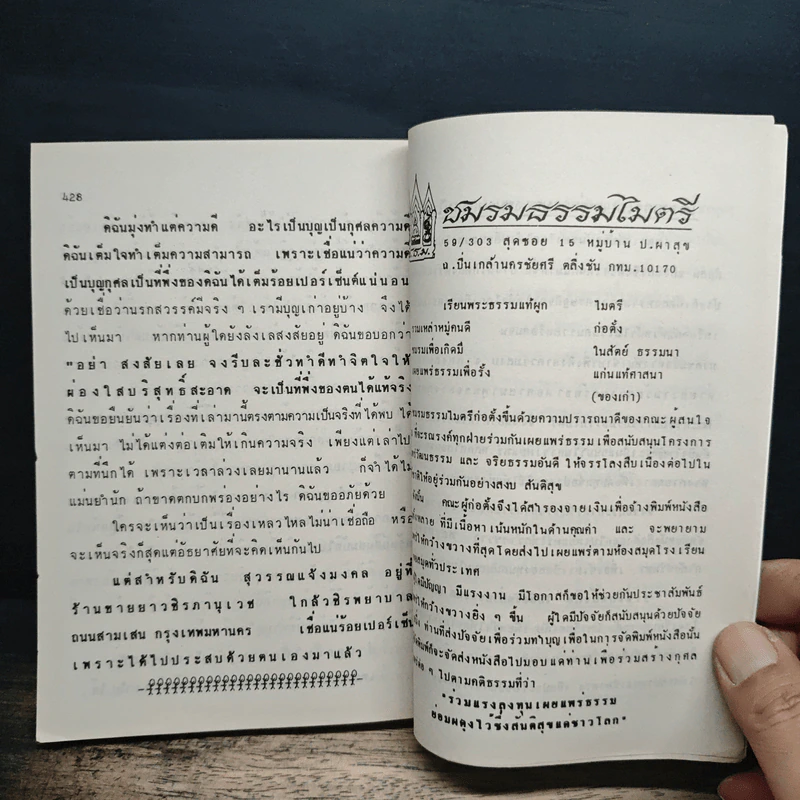 428
ดิฉันมุ่งทำแต่ความดี อะไรเป็นบุญเป็นกุศลความดี
ดิฉันเต็มใจทำเต็มความสามารถ เพราะเชื่อแน่ว่าความดี
เป็นบุญกุศลเป็นที่พึ่งของดิฉันได้เต็มร้อยเปอร์เซ็นต์แน่นอน
ด้วยเชื่อว่านรกสวรรค์มีจริง ๆ เรามีบุญเก่าอยู่บ้าง จึงได้
ไปเห็นมา หากท่านผู้ใดยังลังเลสงสัยอยู่ ดิฉันขอบอกว่า
"อย่า สงสัยเลย จงรีบละชั่วทำดีทำจิตใจให้
ผ่องใสบริสุทธิ์สะอาด จะเป็นที่พึ่งของตนได้แท้จริง
ดิฉันขอยืนยันว่าเรื่องที่เล่ามานี้ตรงตามความเป็นจริงที่ได้พบ ได้
เห็นมา ไม่ได้แต่งต่อเติมให้เกินความจริง เพียงแต่เล่าไป
ตามที่นึกได้ เพราะเวลาล่วงเลยมานานแล้ว ก็จำได้ไม่
แม่นยำนัก ถ้าขาดตกบกพร่องอย่างไร ดิฉันขออภัยด้วย
ใครจะเห็นว่าเป็นเรื่องเหลวไหลไม่น่าเชื่อถือ หรือ
จะเห็นจริงก็สุดแต่อัธยาศัยที่จะคิดเห็นกันไป
แต่สำหรับดิฉัน สุวรรณแจ้งมงคล อยู่ที่
ร้านขายยาวชิรภานุเวช ใกล้วชิรพยาบาล
ถนนสามเสน กรุงเทพมหานคร เชื่อแน่ร้อยเปอร์เซ็น
เพราะได้ไปประสบด้วยตนเองมาแล้ว
ช.ธ.ม.
ชมรมธรรมไมตรี
59/303 สุดซอย 15 หมู่บ้าน ป.ผาสุข
ถ.ปิ่นเกล้านครชัยศรี ตลิ่งชัน กทม.10170
เรียนพระธรรมแท้ผูก ไมตรี
เหล่าหมู่คนดี ก่อตั้ง
เพื่อเกิดมี ในสัตย์ ธรรมนา
เผยแพร่ธรรมเพื่อรั้ง แก่นแท้ศาสนา
(ของเก่า)
ธรรมไมตรีก่อตั้งขึ้นด้วยความปรารถนาดีของคณะ ผู้สนใจ
ที่จะรณรงค์ทุกฝ่ายร่วมกันเผยแพร่ธรรม เพื่อสนับสนุนโครงการ
วัฒนธรรม และ จริยธรรมอันดี ให้จรรโลงสืบเนื่องต่อไปใน
ให้อยู่ร่วมกันอย่างสงบ สันติสุข
คณะผู้ก่อตั้งจึงได้สำรองจ่ายเงินเพื่อจ้างพิมพ์หนังสือ
ที่มีเนื้อหาเน้นหนักในด้านคุณค่า และ จะพยายาม
ให้กว้างขวางที่สุดโดยส่งไปเผยแพร่ตามห้องสมุดโรงเรียน
ทั่วประเทศ
มีปัญญา มีแรงงาน มีโอกาสก็ขอให้ช่วยกันประชาสัมพันธ์
ให้กว้างขวางยิ่ง ๆ ขึ้น ผู้ใดมีปัจจัยก็สนับสนุนด้วยปัจจัย
ท่านที่ส่งปัจจัยเพื่อร่วมทำบุญ เพื่อในการจัดพิมพ์หนังสือนั้น
ก็จะจัดส่งหนังสือไปมอบแด่ท่านเพื่อร่วมสร้างกุศล
ๆ ไปตามคติธรรมที่ว่า
"ร่วมแรงลงทุนเผยแพร่ธรรม
ย่อมผดุงไว้ซึ่งสันติสุขแด่ชาวโลก"